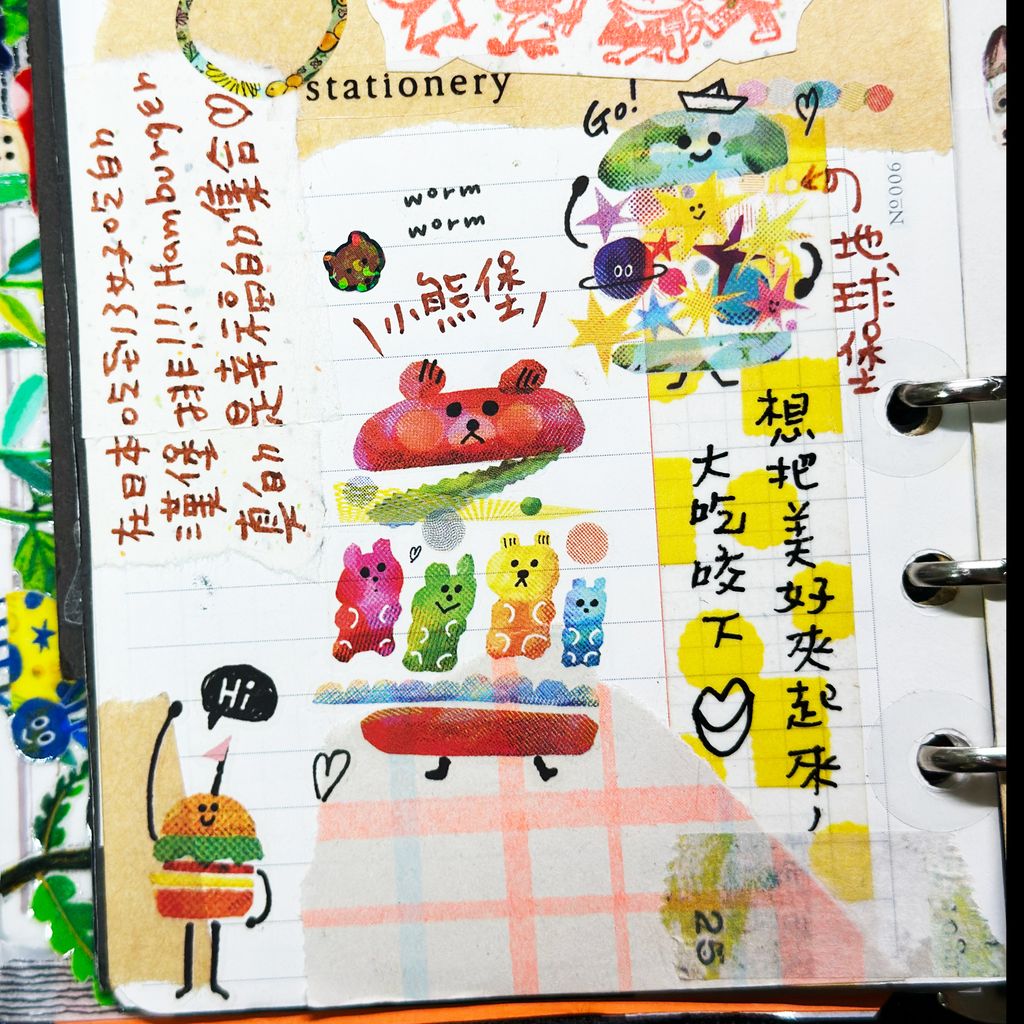 stationery
Go!
在日本吃到了好吃的
漢堡排!!!Hamburger
真的是幸福的集合♡
worm
worm
小熊堡
№006
地球堡
想把美好夾起來,
大吃咬下
Hi
25